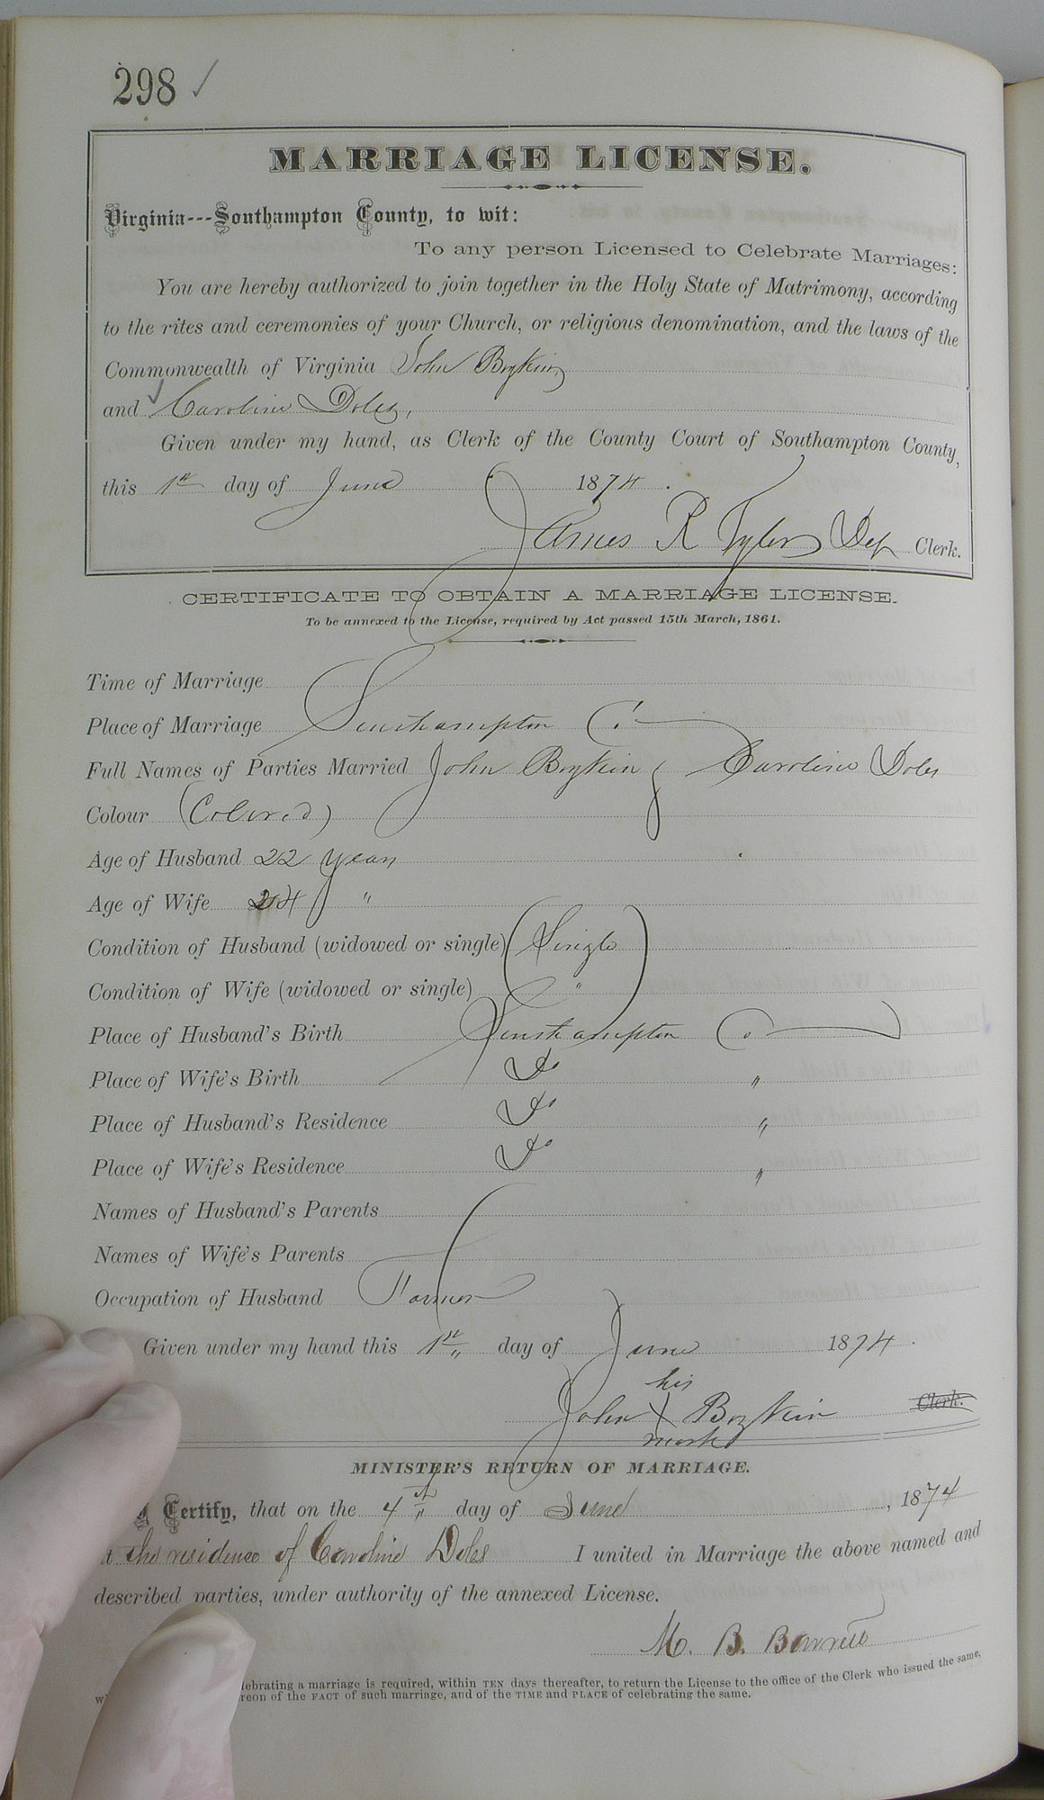 298 ✓
MARRIAGE LICENSE.
Virginia---Southampton County, to wit:
To any person Licensed to Celebrate Marriages:
You are hereby authorized to join together in the Holy State of Matrimony, according
to the rites and ceremonies of your Church, or religious denomination, and the laws of the
Commonwealth of Virginia John Boykin
and Caroline Doles,
Given under my hand, as Clerk of the County Court of Southampton County,
this 1st day of June 1874.
James R Tyler Dep Clerk.
CERTIFICATE TO OBTAIN A MARRIAGE LICENSE.
To be annexed to the License, required by Act passed 15th March, 1861.
Time of Marriage
Place of Marriage Southampton Co.
Full Names of Parties Married John Boykin & Caroline Doles
Colour (Colored)
Age of Husband 22 years
Age of Wife 24 "
Condition of Husband (widowed or single) (Single)
Condition of Wife (widowed or single) "
Place of Husband's Birth Southampton Co
Place of Wife's Birth Do "
Place of Husband's Residence Do "
Place of Wife's Residence Do "
Names of Husband's Parents
Names of Wife's Parents
Occupation of Husband Farmer
Given under my hand this 1st day of June 1874.
his
John X Boykin Clerk.
mark
MINISTER'S RETURN OF MARRIAGE.
Certify, that on the 4th day of June, 1874
the residence of Caroline Doles I united in Marriage the above named and
described parties, under authority of the annexed License.
M. B. Barrett
lebrating a marriage is required, within TEN days thereafter, to return the License to the office of the Clerk who issued the same,
reon of the FACT of such marriage, and of the TIME and PLACE of celebrating the same.